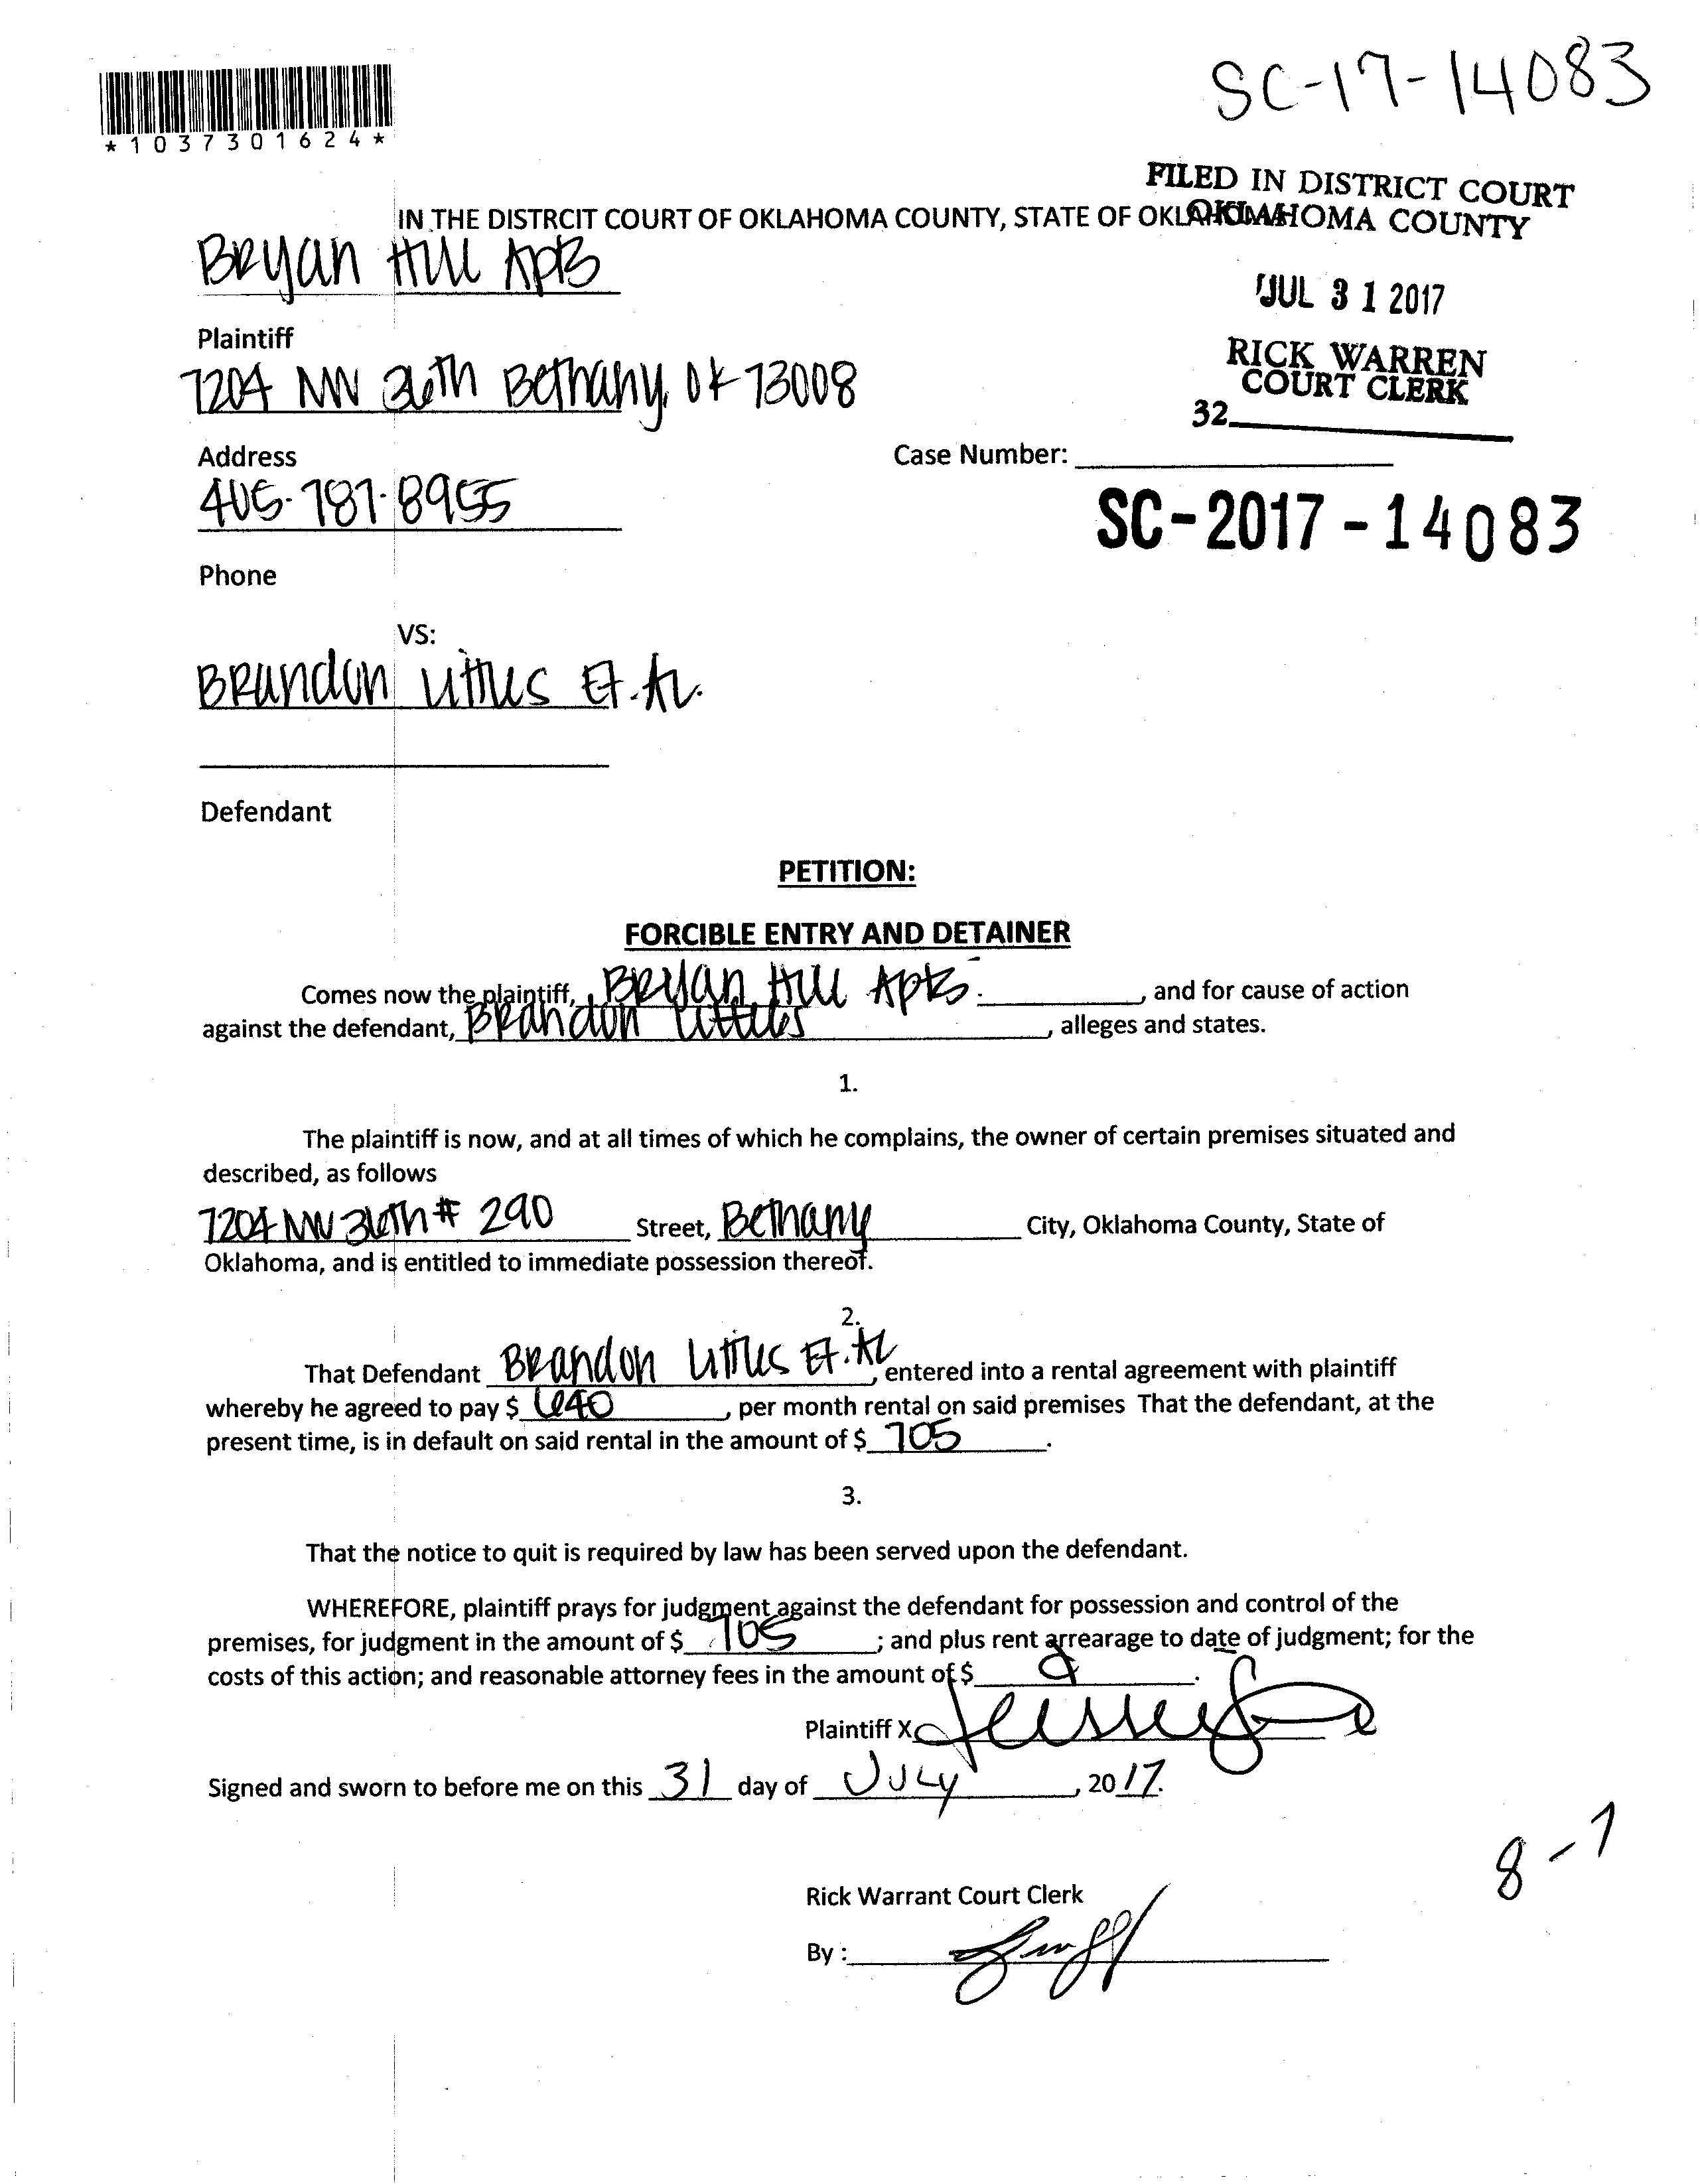 SC-17-14083
*1037301624*
FILED IN DISTRICT COURT
OKLAHOMA COUNTY
IN THE DISTRCIT COURT OF OKLAHOMA COUNTY, STATE OF OKLAHOMA
Bryan Hill Apts
JUL 31 2017
Plaintiff
RICK WARREN
COURT CLERK
7204 NW 36th Bethany, OK 73008
32
Address
Case Number:
405-787-8955
SC-2017-14083
Phone
VS:
Brandon Littles Et. Al.
Defendant
PETITION:
FORCIBLE ENTRY AND DETAINER
Comes now the plaintiff, Bryan Hill Apts. , and for cause of action
against the defendant, Brandon Littles , alleges and states.
1.
The plaintiff is now, and at all times of which he complains, the owner of certain premises situated and
described, as follows
7204 NW 36th # 290 Street, Bethany City, Oklahoma County, State of
Oklahoma, and is entitled to immediate possession thereof.
2.
That Defendant Brandon Littles Et. Al , entered into a rental agreement with plaintiff
whereby he agreed to pay $ 640 , per month rental on said premises That the defendant, at the
present time, is in default on said rental in the amount of $ 705 .
3.
That the notice to quit is required by law has been served upon the defendant.
WHEREFORE, plaintiff prays for judgment against the defendant for possession and control of the
premises, for judgment in the amount of $ 705 ; and plus rent arrearage to date of judgment; for the
costs of this action; and reasonable attorney fees in the amount of $ .
Plaintiff X
Signed and sworn to before me on this 31 day of July , 2017.
8-7
Rick Warrant Court Clerk
By :